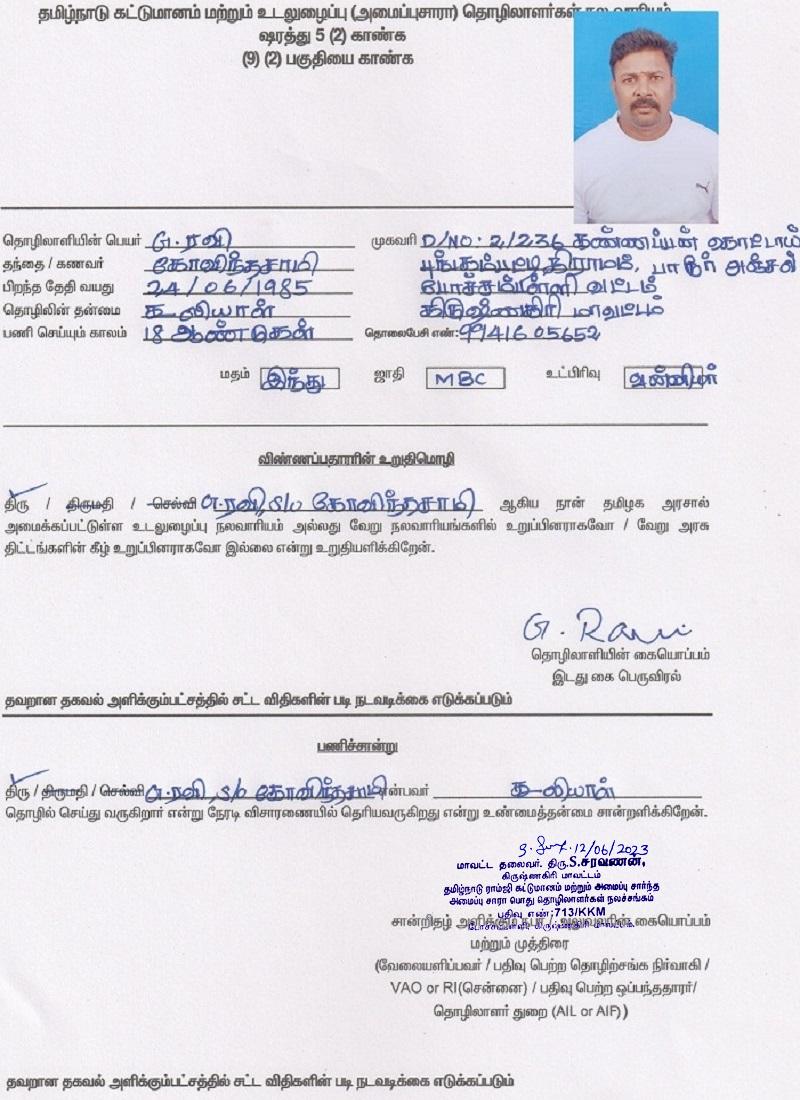 தமிழ்நாடு கட்டுமானம் மற்றும் உடலுழைப்பு (அமைப்புசாரா) தொழிலாளர்கள் நல வாரியம்
ஷரத்து 5 (2) காண்க
(9) (2) பகுதியை காண்க
தொழிலாளியின் பெயர் G.ரவி
முகவரி D/NO: 2/236 கண்ணப்பன் கொட்டாய்
தந்தை / கணவர் கோவிந்தசாமி
கிராமம், பாரூர் அஞ்சல்
பிறந்த தேதி வயது 24/06/1985
போச்சம்பள்ளி வட்டம்
தொழிலின் தன்மை கூலியாள்
கிருஷ்ணகிரி மாவட்டம்
பணி செய்யும் காலம் 18 ஆண்டுகள்
தொலைபேசி எண்: 9941605652
மதம் இந்து ஜாதி MBC உட்பிரிவு வன்னியர்
விண்ணப்பதாரரின் உறுதிமொழி
திரு / திருமதி / செல்வி G.ரவி, S/o கோவிந்தசாமி ஆகிய நான் தமிழக அரசால்
அமைக்கப்பட்டுள்ள உடலுழைப்பு நலவாரியம் அல்லது வேறு நலவாரியங்களில் உறுப்பினராகவோ / வேறு அரசு
திட்டங்களின் கீழ் உறுப்பினராகவோ இல்லை என்று உறுதியளிக்கிறேன்.
G. Ravi
தொழிலாளியின் கையொப்பம்
இடது கை பெருவிரல்
தவறான தகவல் அளிக்கும்பட்சத்தில் சட்ட விதிகளின் படி நடவடிக்கை எடுக்கப்படும்
பணிச்சான்று
திரு / திருமதி / செல்வி G.ரவி, S/o கோவிந்தசாமி என்பவர் கூலியாள்
தொழில் செய்து வருகிறார் என்று நேரடி விசாரணையில் தெரியவருகிறது என்று உண்மைத்தன்மை சான்றளிக்கிறேன்.
12/06/2023
மாவட்ட தலைவர். திரு.S.சரவணன்,
கிருஷ்ணகிரி மாவட்டம்
தமிழ்நாடு ராம்ஜி கட்டுமானம் மற்றும் அமைப்பு சார்ந்த
அமைப்பு சாரா பொது தொழிலாளர்கள் நலச்சங்கம்
பதிவு எண்:713/KKM
சான்றிதழ் அளிக்கும் நபர் / அலுவலரின் கையொப்பம்
மற்றும் முத்திரை
(வேலையளிப்பவர் / பதிவு பெற்ற தொழிற்சங்க நிர்வாகி /
VAO or RI(சென்னை) / பதிவு பெற்ற ஒப்பந்ததாரர்/
தொழிலாளர் துறை (AIL or AIF))
தவறான தகவல் அளிக்கும்பட்சத்தில் சட்ட விதிகளின் படி நடவடிக்கை எடுக்கப்படும்